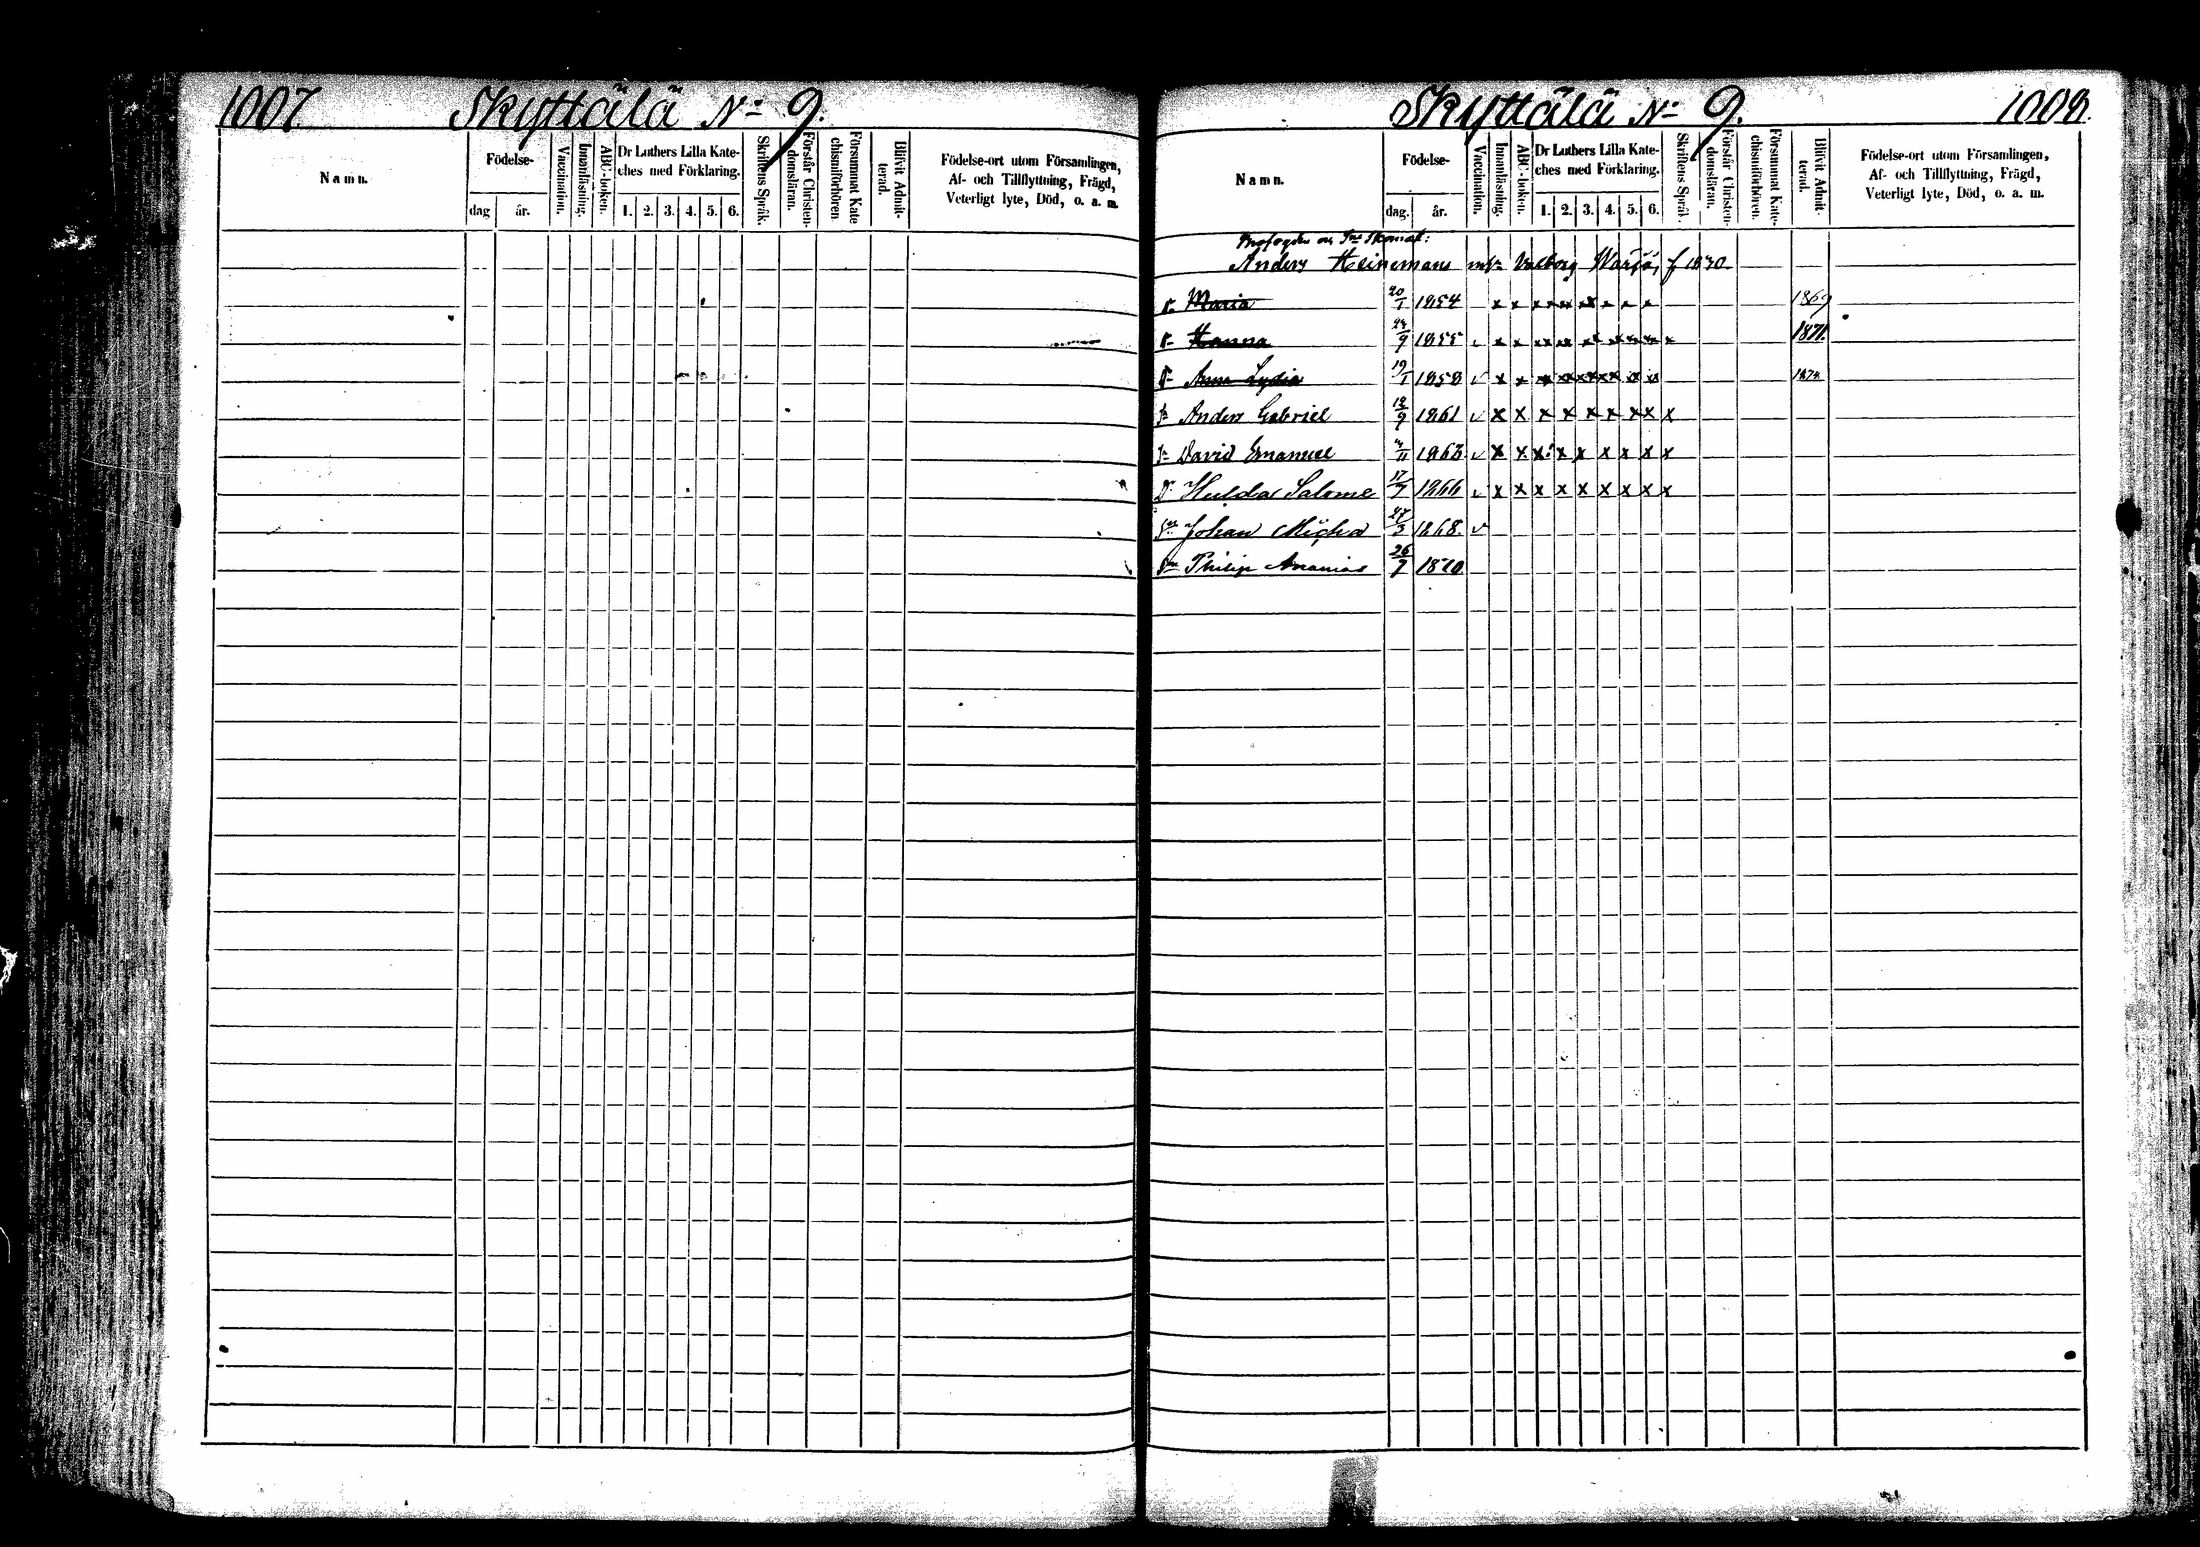 1007.
Skyttälä No 9.
Namn.
Födelse-
dag
år.
Vaccination.
Innanläsning.
ABC-boken.
Dr Luthers Lilla Kate-
ches med Förklaring.
1. 2. 3. 4. 5. 6.
Skriftens Språk.
Förstår Christen-
domsläran.
Försummat Kate
chismiförhören
Blifvit Admit-
terad.
Födelse-ort utom Församlingen,
Af- och Tillflyttning, Frägd,
Veterligt lyte, Död, o. a. m.
Skyttälä No 9.
1008.
Namn.
Födelse-
dag.
år.
Vaccination.
Innanläsning.
ABC-boken.
Dr Luthers Lilla Kate-
ches med Förklaring.
1. 2. 3. 4. 5. 6.
Skriftens Språk.
Förstår Christen-
domsläran.
Försummat Kate-
chismiförhören.
Blifvit Admit-
terad.
Födelse-ort utom Församlingen,
Af- och Tillflyttning, Frägd,
Veterligt lyte, Död, o. a. m.
Anders Heinemans Valborg f 1830
Maria 20/1 1854 x x x x x x x x 1869
Hanna 9 1855 x x x x x x x x x 1871.
Anna Lydia 19/1 1858 v x x x x x x x x 1874
Anders Gabriel 12/9 1861 v x x x x x x x x x
David Emanuel 11 1863 v x x x x x x x x x
Dr Hulda Salome 17/7 1866 v x x x x x x x x x
Sn Johan Micha 27/3 1868. v
Sn Philip Ananias 26/7 1870